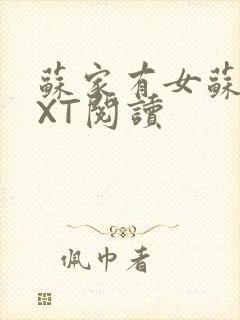 蘇家有女蘇
XT閱讀
佩巾者